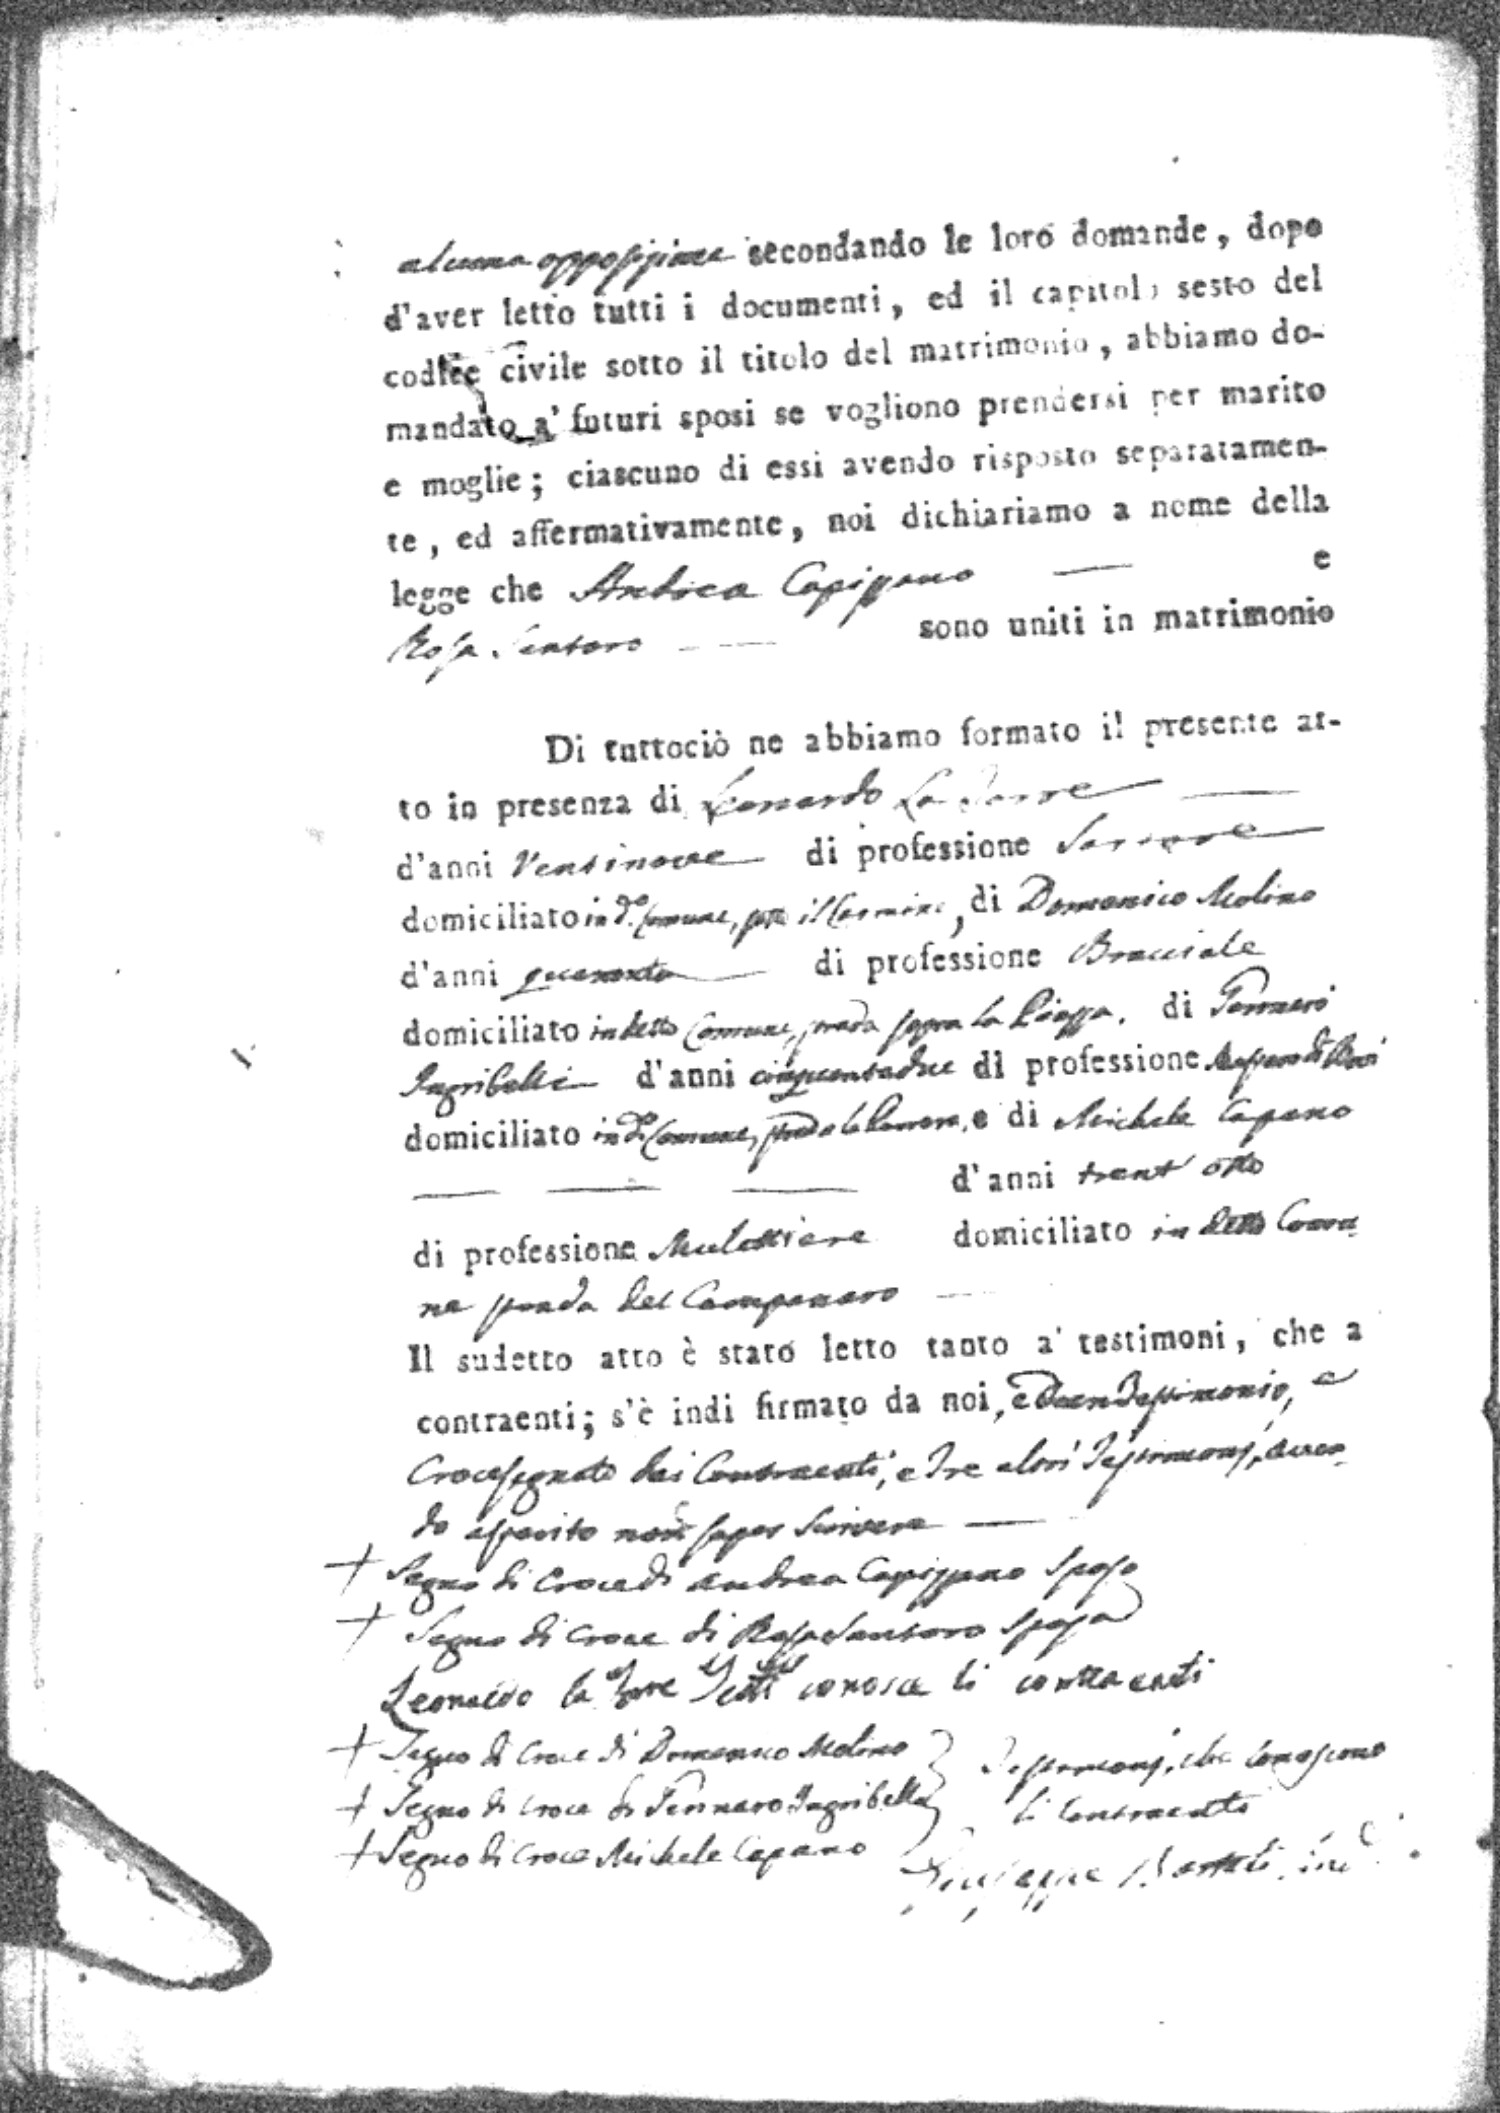 alcuna opposizione secondando le loro domande, dopo
d'aver letto tutti i documenti, ed il capitolo sesto del
codice civile sotto il titolo del matrimonio, abbiamo do-
mandato a' futuri sposi se vogliono prendersi per marito
e moglie; ciascuno di essi avendo risposto separatamen-
te, ed affermativamente, noi dichiariamo a nome della
legge che Andrea Capizzano — e
Rosa Santoro — sono uniti in matrimonio
Di tuttociò ne abbiamo formato il presente at-
to in presenza di Leonardo La Torre —
d'anni Ventinove di professione Sartore
domiciliato in do. Comune, il Carmine, di Domenico Molino
d'anni quaranta di professione Bracciale
domiciliato in detto Comune, strada sopra la Piazza. di Gennaro
Ingribelli d'anni cinquantadue di professione Massaro di Bovi
domiciliato in do. Comune, strada la, e di Michele Capano
— — — d'anni trent'otto
di professione Mulattiere domiciliato in detto Comu-
ne strada del Campanaro —
Il sudetto atto è stato letto tanto a' testimoni, che a
contraenti; s'è indi firmato da noi, e Testimonio, e
Crocesegnato dai Contraenti, e tre altri Testimonj, aven-
do asserito non saper scrivere —
+ Segno di Croce di Andrea Capizzano Sposo
+ Segno di Croce di Rosa Santoro Sposa
Leonardo la Torre conosce li contraenti
+ Segno di Croce di Domenico Molino } Testimonj, che conoscono
+ Segno di Croce di Gennaro Ingribelli } li Contraenti
+ Segno di Croce Michele Capano
Giuseppe